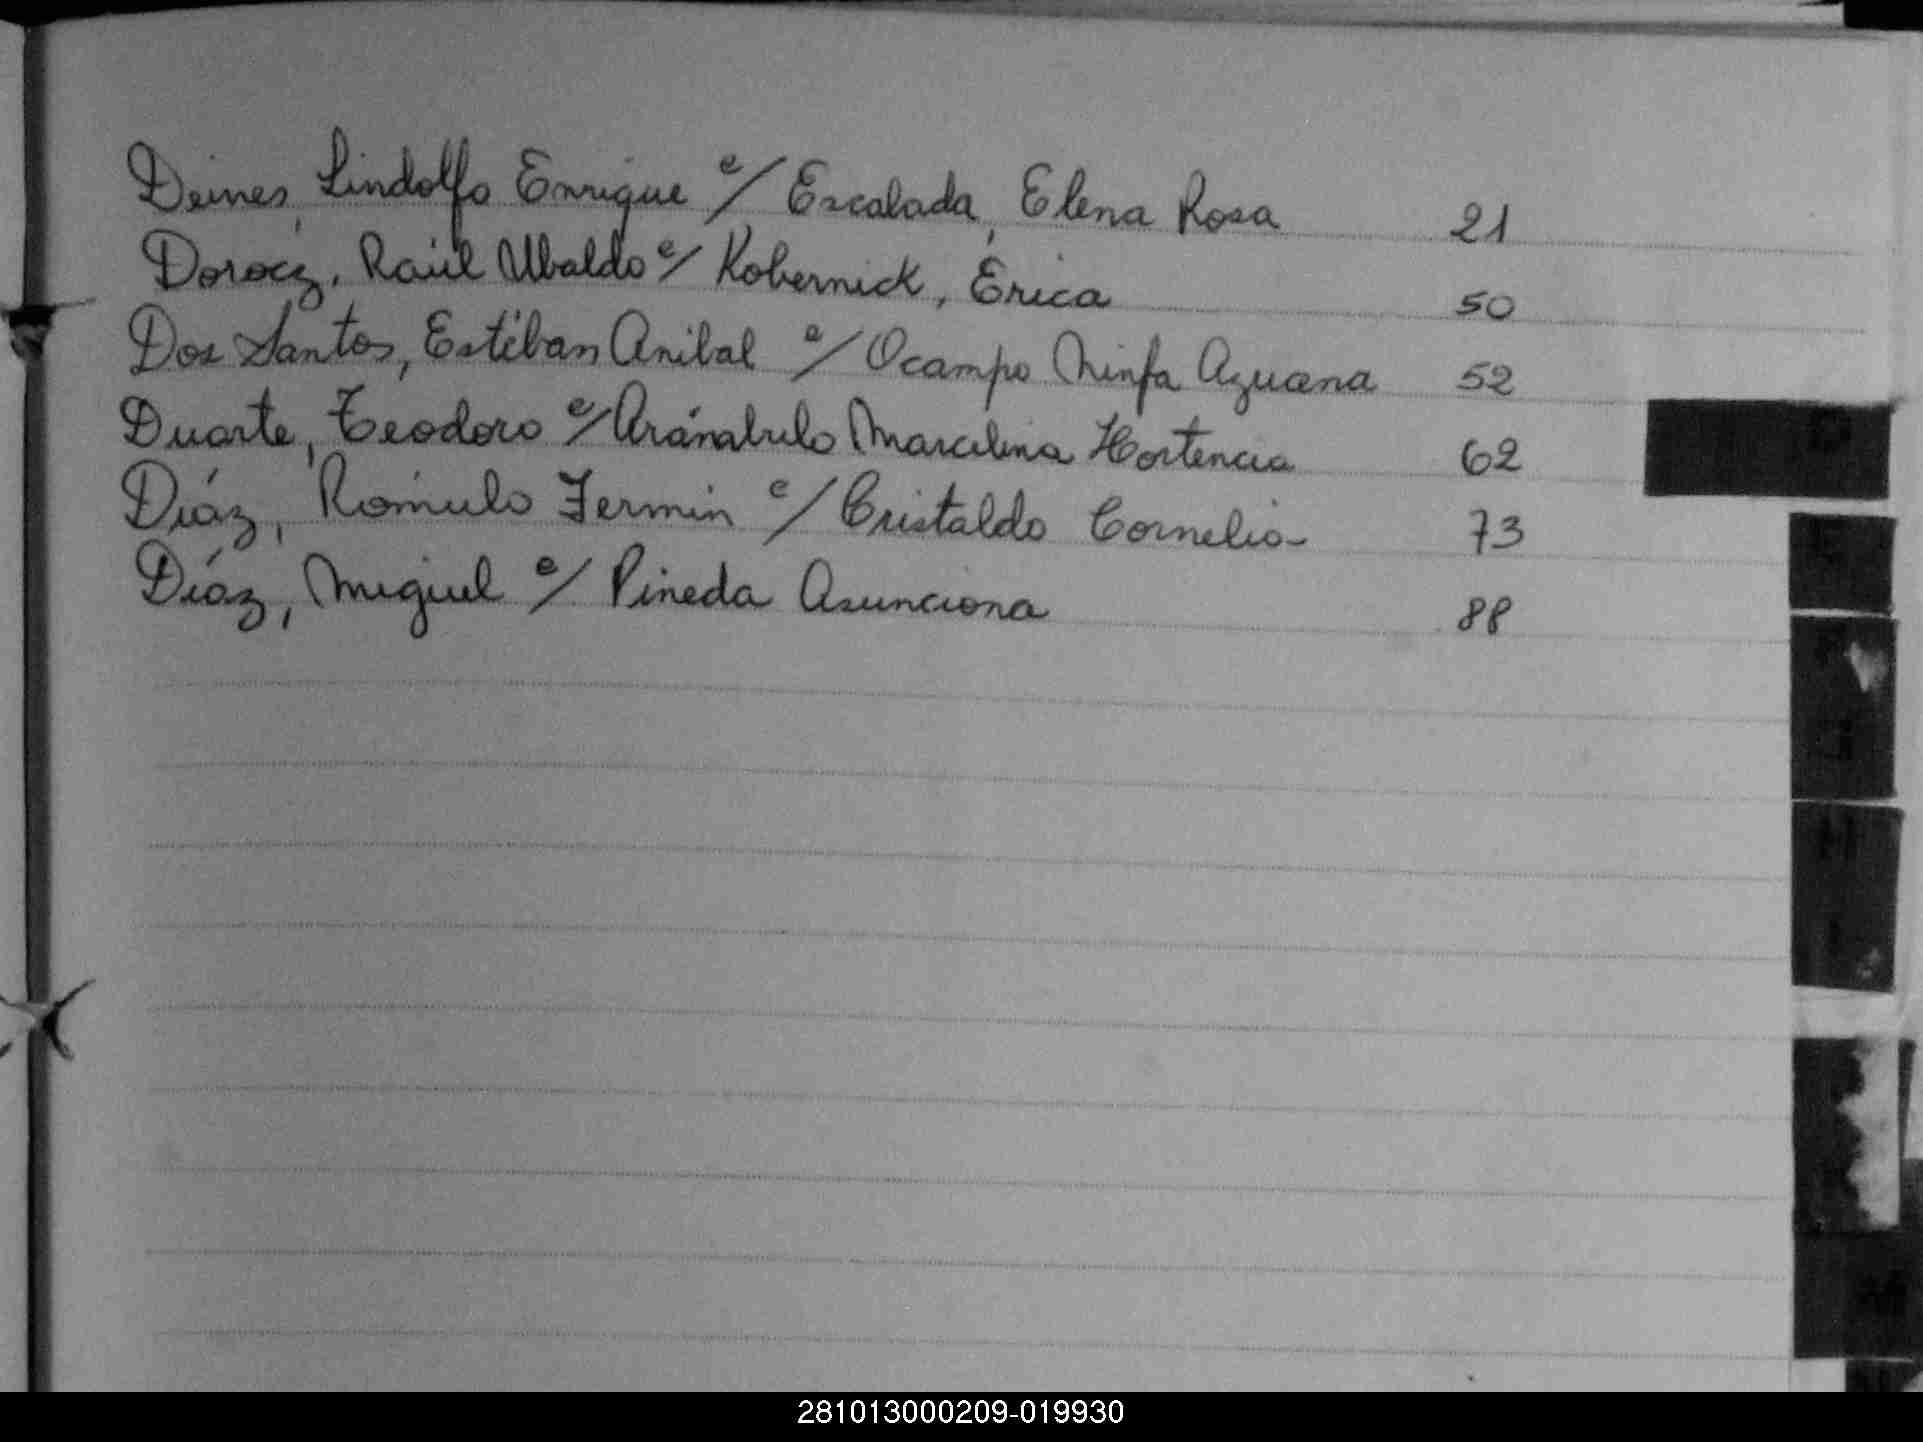 Deines, Lindolfo Enrique c/ Escalada, Elena Rosa 21
Dorocz, Raúl Ubaldo c/ Kobernick, Erica 50
Dos Santos, Estéban Anibal c/ Ocampo Ninfa Azucena 52
Duarte, Teodoro c/ Marcelina Hortencia 62
Díaz, Rómulo Fermin c/ Cristaldo Cornelia 73
Díaz, Miguel c/ Pineda Asunciona 88
D
H
I
M
281013000209-019930